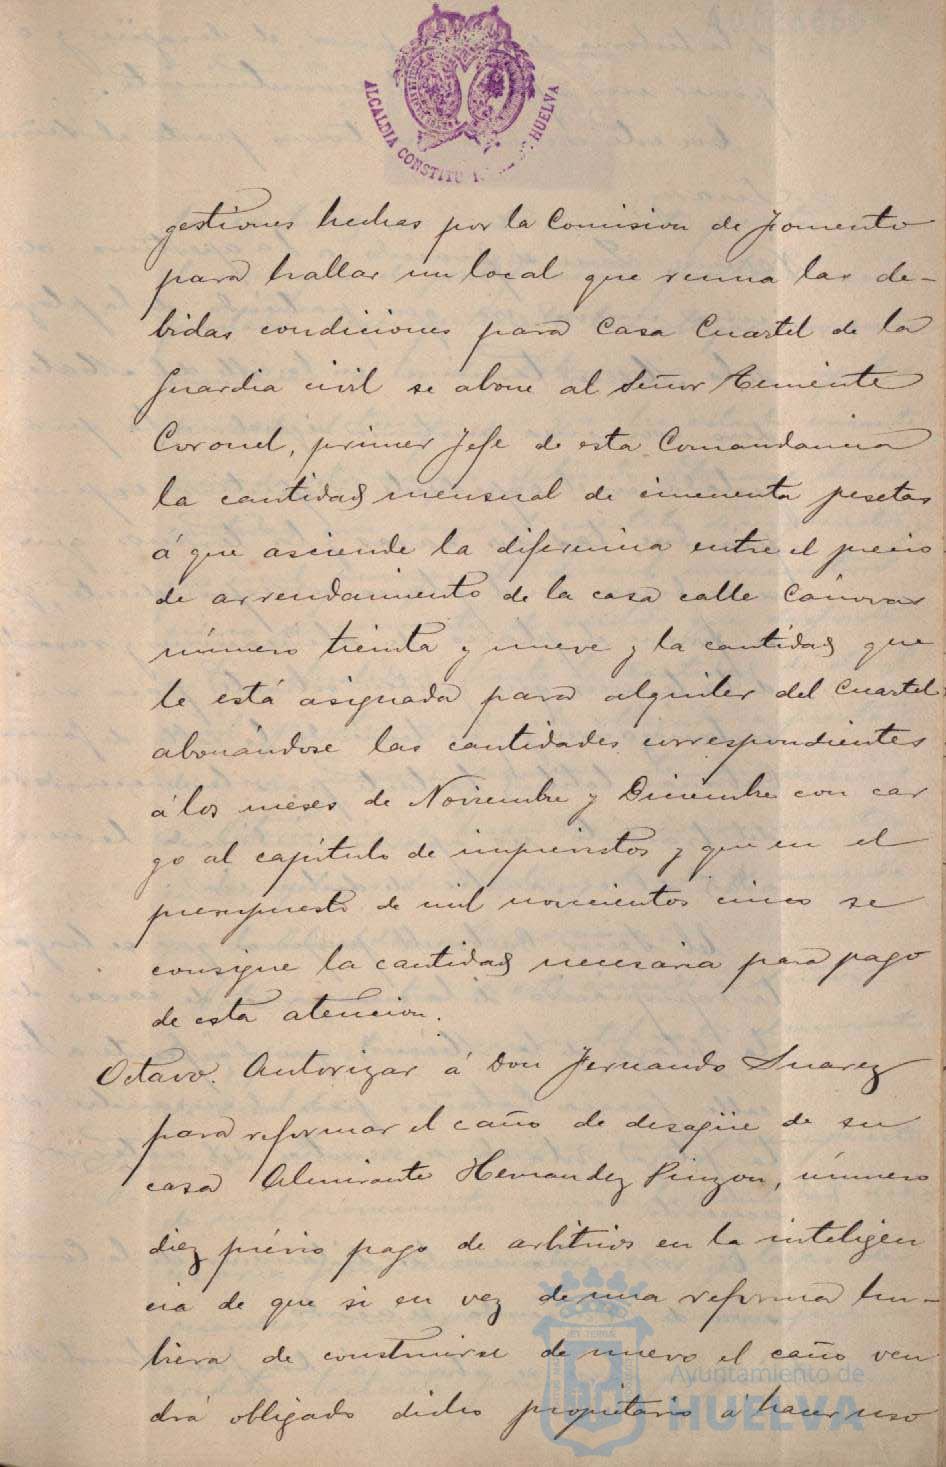 ALCALDIA CONSTITU DE HUELVA
gestiones hechas por la Comision de Fomento
para hallar un local que reuna las de-
bidas condiciones para Casa Cuartel de la
Guardia civil se abone al Señor Teniente
Coronel, primer Jefe de esta Comandancia
la cantidad mensual de cincuenta pesetas
á que asciende la diferencia entre el precio
de arrendamiento de la casa calle Cánovas
número treinta y nueve y la cantidad que
le está asignada para alquiler del Cuartel
abonándose las cantidades correspondientes
á los meses de Noviembre y Diciembre con car
go al capítulo de imprevistos y que en el
presupuesto de mil novecientos cinco se
consigne la cantidad necesaria para pago
de esta atencion.
Octavo. Autorizar á Don Fernando Suarez
para reformar el caño de desagüe de su
casa Almirante Hernandez Pinzon, número
diez prévio pago de arbitrios en la inteligen
cia de que si en vez de una reforma hu-
biera de construirse de nuevo el caño ven
drá obligado dicho propietario á hacer uso
Ayuntamiento de
HUELVA